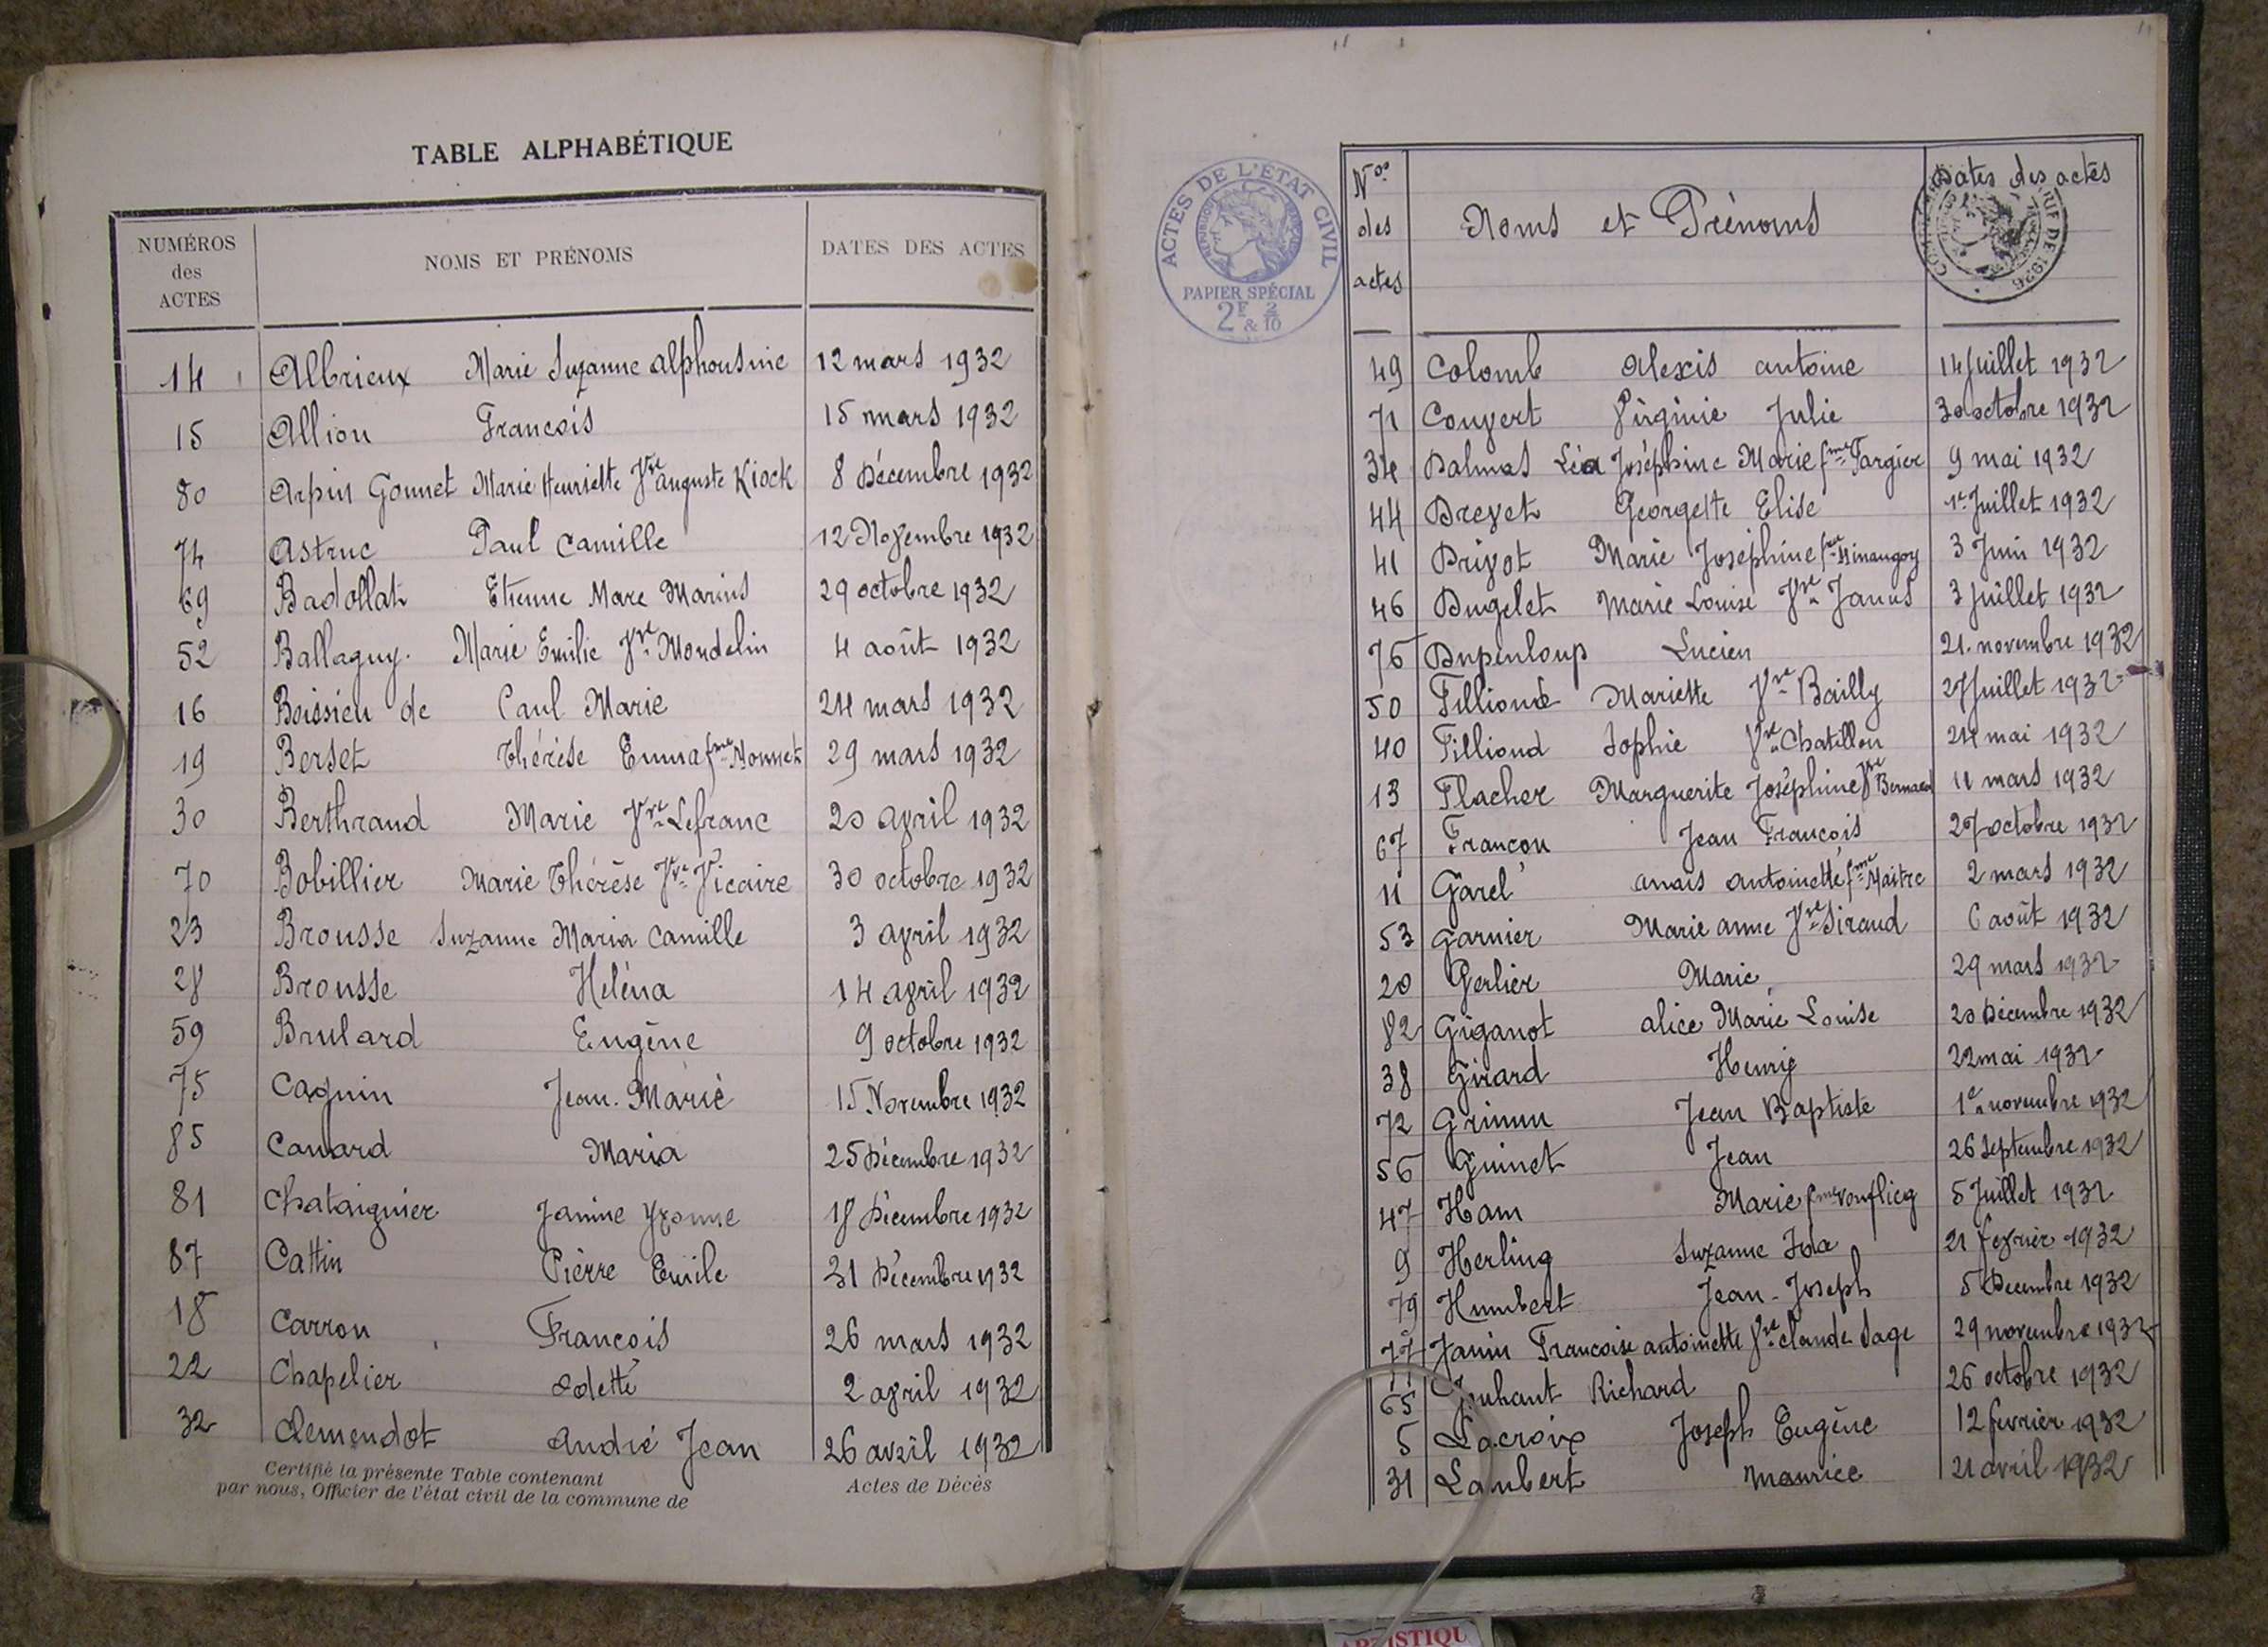 TABLE ALPHABÉTIQUE
NUMÉROS des ACTES NOMS ET PRÉNOMS DATES DES ACTES
14 Albrieux Marie Suzanne Alphonsine 12 mars 1932
15 Allion Francois 15 mars 1932
80 Arpin Gonnet Marie Henriette Vve Auguste Kiock 8 Décembre 1932
74 Astruc Paul Camille 12 Novembre 1932
69 Badollat Etienne Marc Marius 29 octobre 1932
52 Ballaguy. Marie Emilie Vve Mondelin 4 août 1932
16 Boissieu de Paul Marie 24 mars 1932
19 Berset Thérèse Emma fme Monnet 29 mars 1932
30 Berthraud Marie Vve Lefranc 20 avril 1932
70 Bobillier Marie Thérèse Vve Vicaire 30 octobre 1932
23 Brousse Suzanne Maria Camille 3 avril 1932
28 Brousse Heléna 14 avril 1932
59 Brulard Eugène 9 octobre 1932
75 Cagnin Jean-Marie 15 Novembre 1932
85 Canard Maria 25 Décembre 1932
81 Chataignier Janine Yvonne 18 Décembre 1932
87 Cattin Pierre Emile 31 Décembre 1932
18 Carron Francois 26 mars 1932
22 Chapelier Odette 2 avril 1932
32 Clemendot André Jean 26 avril 1932
Certifié la présente Table contenant Actes de Décès
par nous, Officier de l'état civil de la commune de
ACTES DE L'ÉTAT CIVIL
PAPIER SPÉCIAL
2F & 2/10
Nos des actes Noms et Prénoms Dates des actes
49 Colomb Alexis Antoine 14 Juillet 1932
71 Couvert Virginie Julie 30 octobre 1932
34 Dalmas Léa Joséphine Marie fme Fargier 9 mai 1932
44 Drevet Georgette Elise 1er Juillet 1932
41 Drivot Marie Joséphine fme 3 Juin 1932
46 Dugelet Marie Louise Vve Janus 3 Juillet 1932
76 Dupenloup Lucien 21 novembre 1932
50 Filliond Mariette Vve Bailly 27 Juillet 1932
40 Filliond Sophie Vve Chatillon 24 mai 1932
13 Flacher Marguerite Joséphine Vve Bernard 11 mars 1932
67 Françon Jean François 27 octobre 1932
11 Garel Anais Antoinette fme Maitre 2 mars 1932
53 Garnier Marie Anne Vve Siraud 6 août 1932
20 Gerlier Marie 29 mars 1932
82 Giganot Alice Marie Louise 20 Décembre 1932
38 Girard Henry 22 mai 1932
72 Grimm Jean Baptiste 1er novembre 1932
56 Guinet Jean 26 Septembre 1932
47 Ham Marie fme Vonflieg 5 Juillet 1932
9 Herling Suzanne Ida 21 fevrier 1932
79 Humbert Jean-Joseph 5 Décembre 1932
77 Janin Francoise Antoinette Vve Claude Sage 29 novembre 1932
65 Jouhant Richard 26 octobre 1932
5 Lacroix Joseph Eugène 12 fevrier 1932
31 Lambert Maurice 21 avril 1932